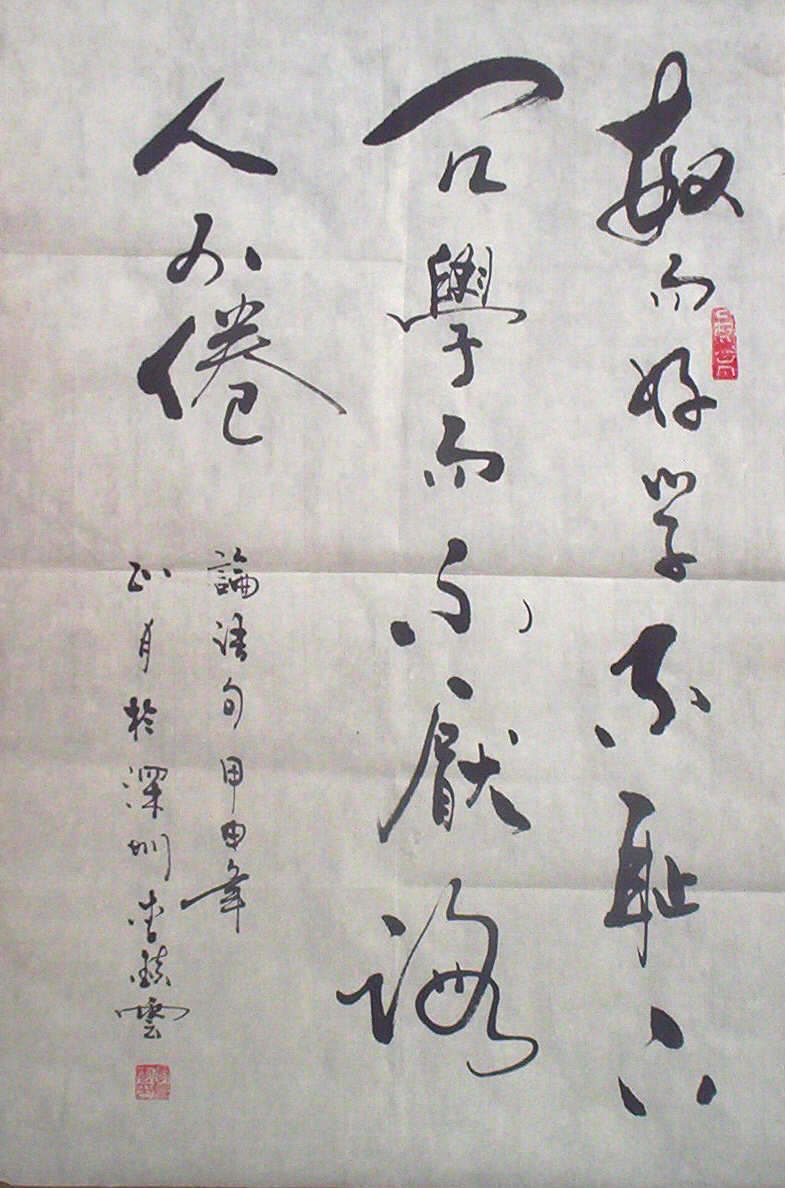 敏而好学不耻下
问學而不厭誨
人不倦
論語句甲申年
正月於深圳李鎮雲